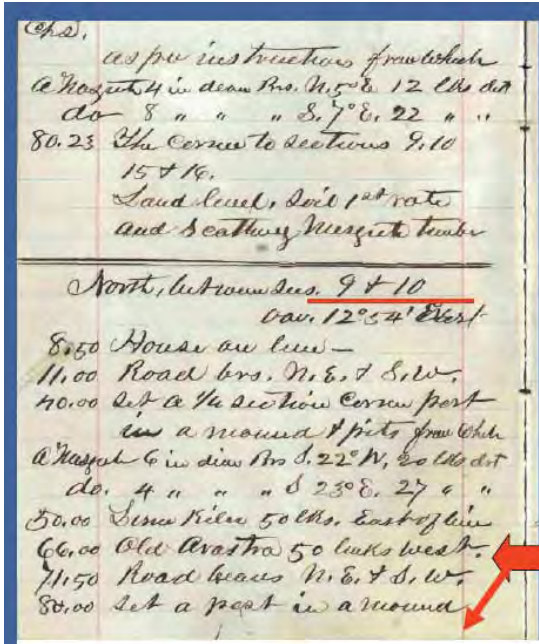 Chs.
as per instructions from which
a Mesquit 4 in diam Brs. N. 5° E. 12 lks dst
do 8 " " " S. 7° E. 22 " "
80.23 The Corner to Sections 9.10
15 & 16.
Land level. Soil 1st rate
and Scattering Mesquite timber
North, between Secs. 9 & 10
Var. 12° 54' East
8.50 House on line —
11.00 Road brs. N. E. & S. W.
40.00 Set a 1/4 Section Corner post
in a mound & pits from which
a Mesquit 6 in diam Brs S. 22° W, 20 lks dst
do. 4 " " " S 23° E. 27 " "
50.00 Lime Kiln 50 lks. East of line
66.00 Old Arastra 50 links West.
71.50 Road bears N. E. & S. W.
80.00 Set a post in a mound